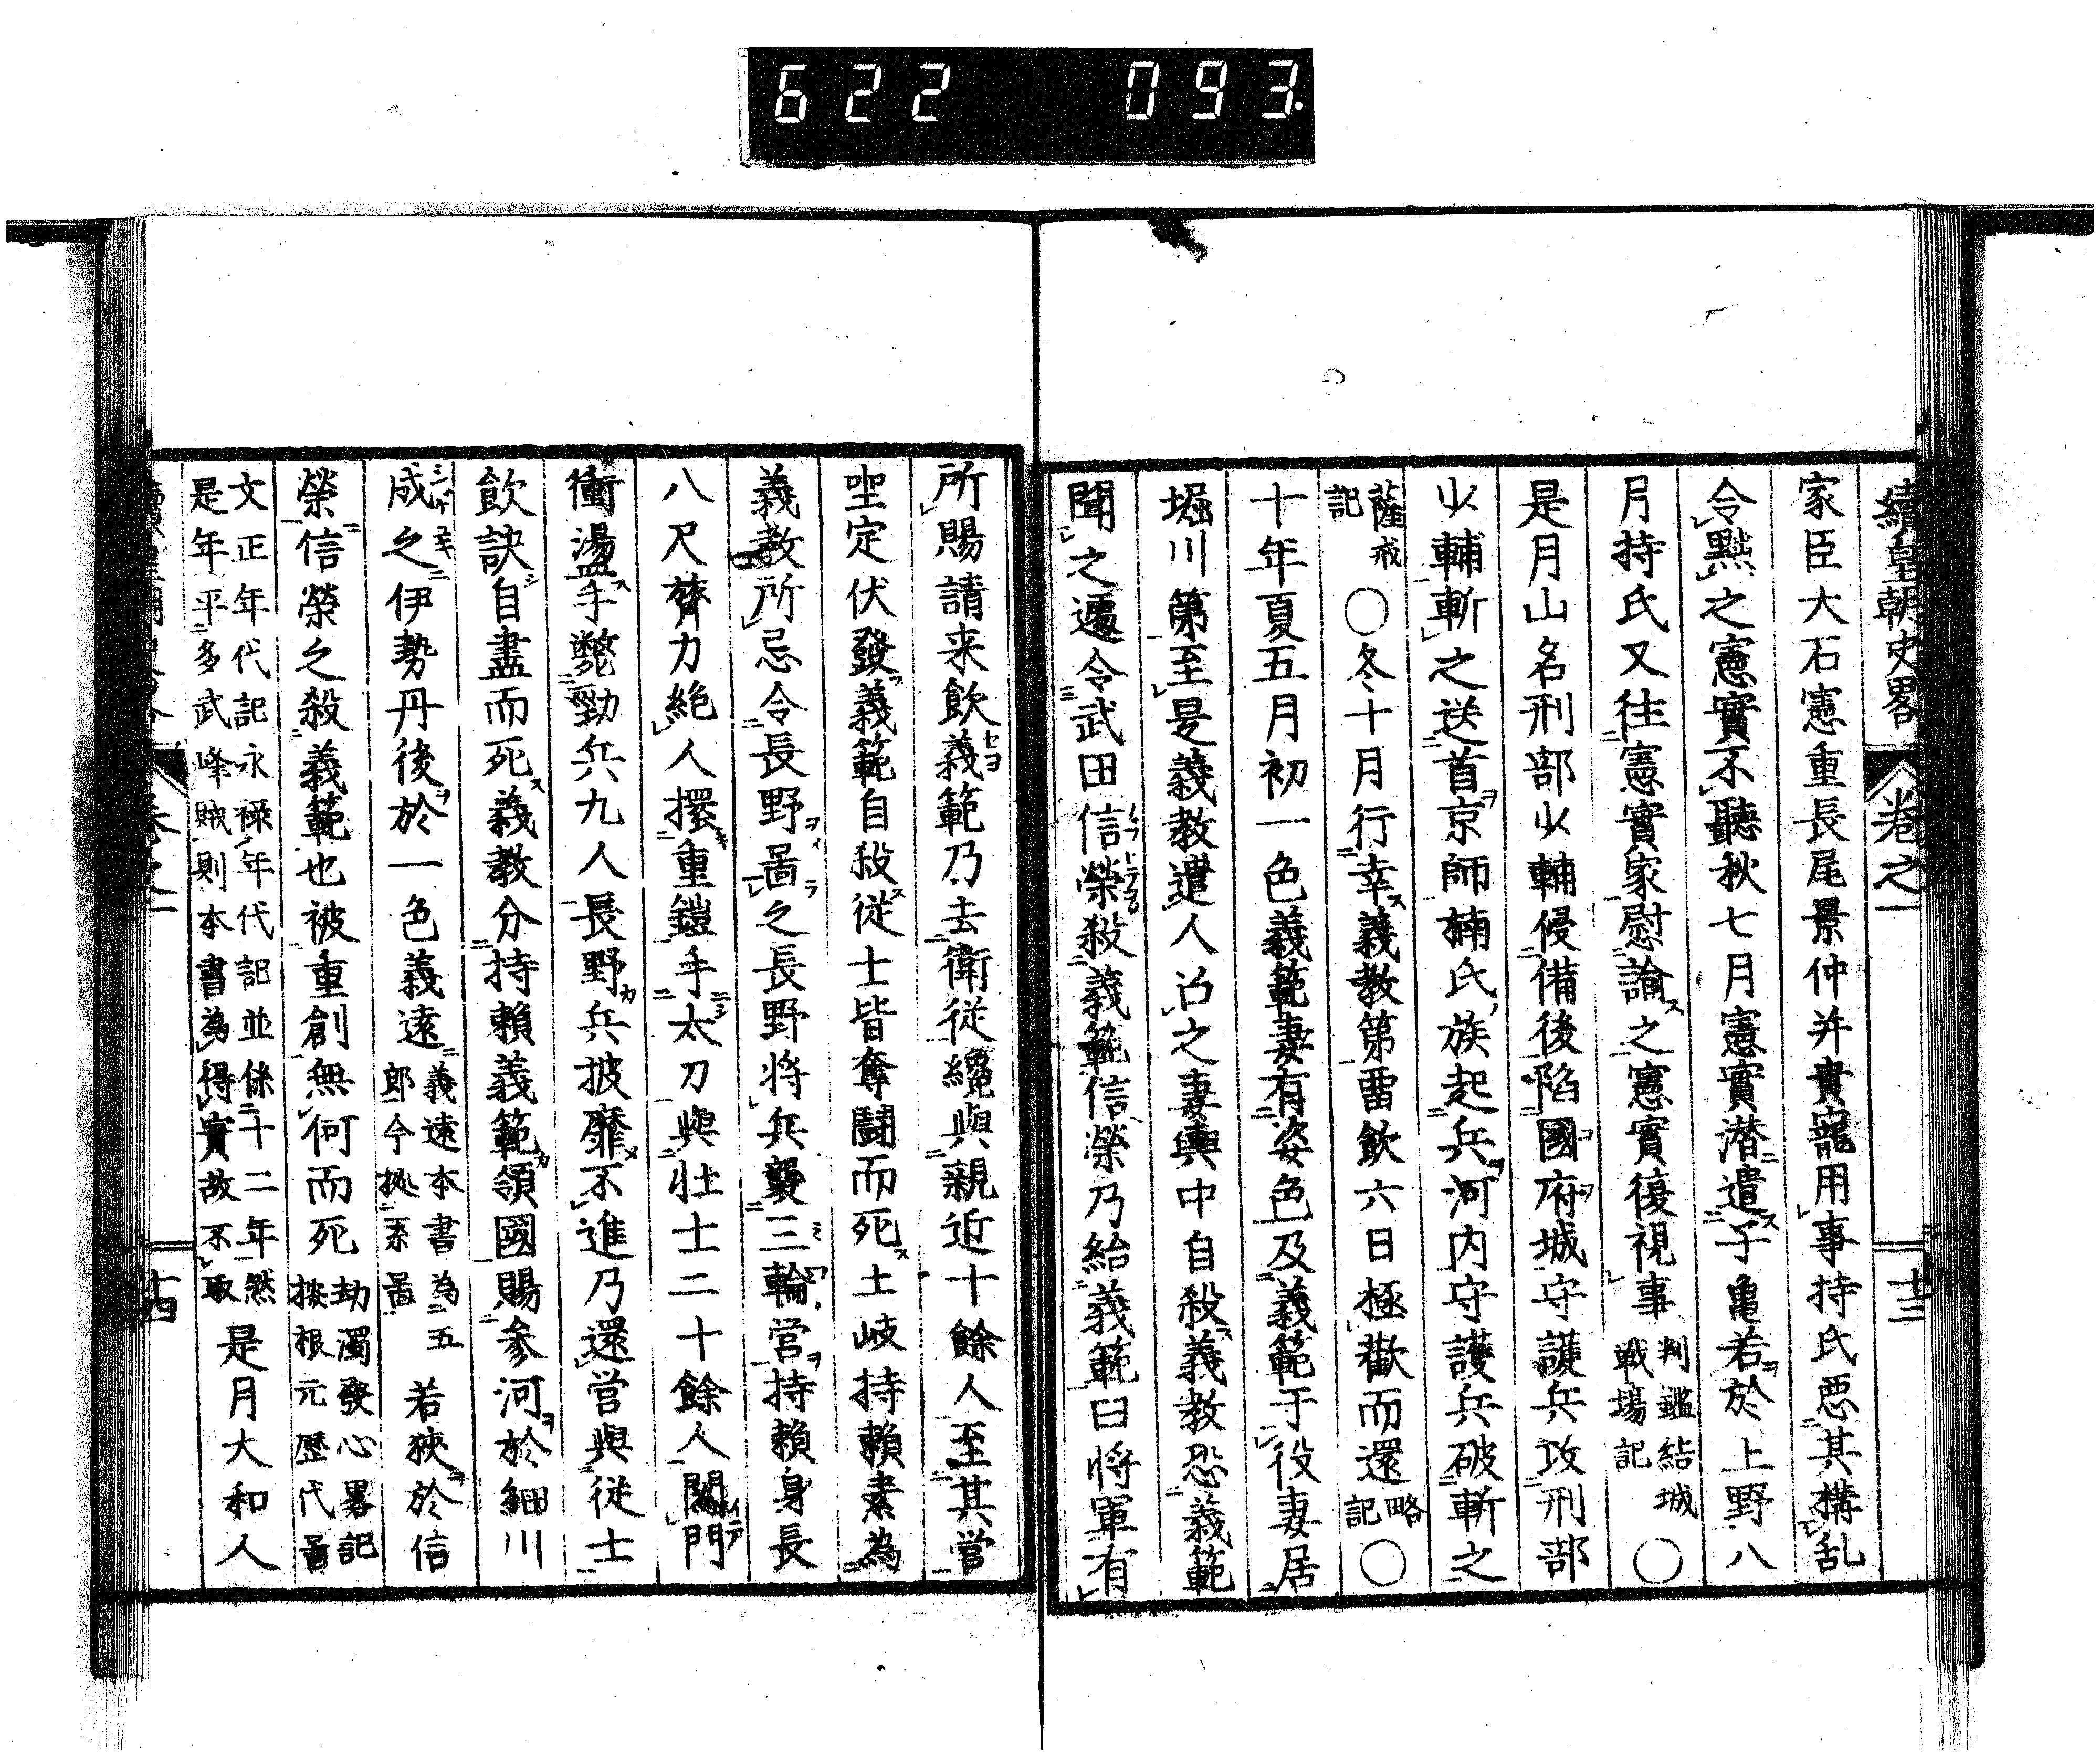 622 093.
續皇朝史畧 卷之一 十三
家臣大石憲重長尾景仲并貴寵用事持氏惡其構乱
令黜之憲實不聽秋七月憲實潜遣子亀若於上野八
月持氏又往憲實家慰諭之憲實復視事判鑑結城戰場記○
是月山名刑部少輔侵備後陷國府城守護兵攻刑部
少輔斬之送首京師楠氏族起兵河内守護兵破斬之
薩戒記○冬十月行幸義教第畱飲六日極歡而還略記○
十年夏五月初一色義範妻有姿色及義範于役妻居
堀川第至是義教遣人召之妻輿中自殺義教恐義範
聞之遷令武田信榮殺義範信榮乃紿義範曰將軍有
所賜請来飲義範乃去衛從纔與親近十餘人至其営
坐定伏發義範自殺從士皆奪闘而死土岐持賴素為
義教所忌令長野啚之長野將兵襲三輪営持賴身長
八尺膂力絶人擐重鎧手太刀與壮士二十餘人闢門
衝盪手斃勁兵九人長野兵披靡不進乃還営與從士
飲訣自盡而死義教分持賴義範領國賜參河於細川
成之伊勢丹後於一色義遠義遠本書為五郎今拠系啚若狹於信
榮信榮之殺義範也被重創無何而死劫濁發心畧記按根元歴代啚
文正年代記永禄年代記並係二十二年然是年平多武峰賊則本書為得實故不取是月大和人
卷之一 十四